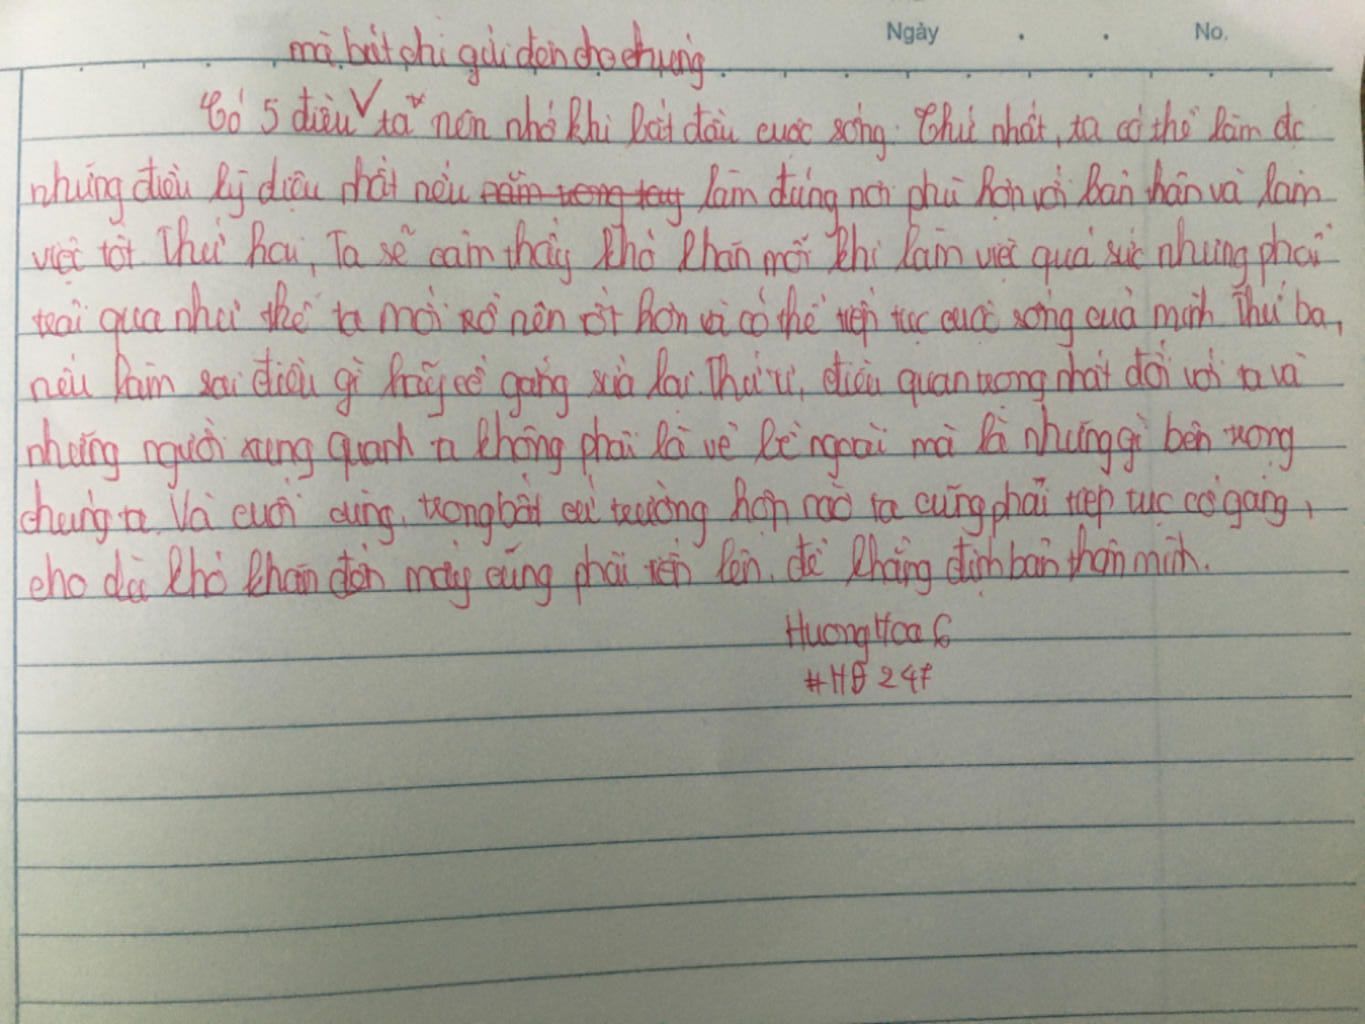 Ngày . . No.
mà bút chì gửi đến cho chúng
Có 5 điều ta nên nhớ khi bắt đầu cuộc sống. Thứ nhất, ta có thể làm đc
những điều kỳ diệu nhất nếu nằm trong tay làm đúng nơi phù hợp với bản thân và làm
việc tốt. Thứ hai, Ta sẽ cảm thấy khó khăn mỗi khi làm việc quá sức nhưng phải
trải qua như thế ta mới trở nên tốt hơn và có thể tiếp tục cuộc sống của mình. Thứ ba,
nếu làm sai điều gì hãy cố gắng sửa lại. Thứ tư, điều quan trọng nhất đối với ta và
những người xung quanh ta không phải là vẻ bề ngoài mà là những gì bên trong
chúng ta. Và cuối cùng, trong bất cứ trường hợp nào ta cũng phải tiếp tục cố gắng,
cho dù khó khăn đến mấy cũng phải tiến lên. để khẳng định bản thân mình.
Huong Hoa 6
#HĐ 247